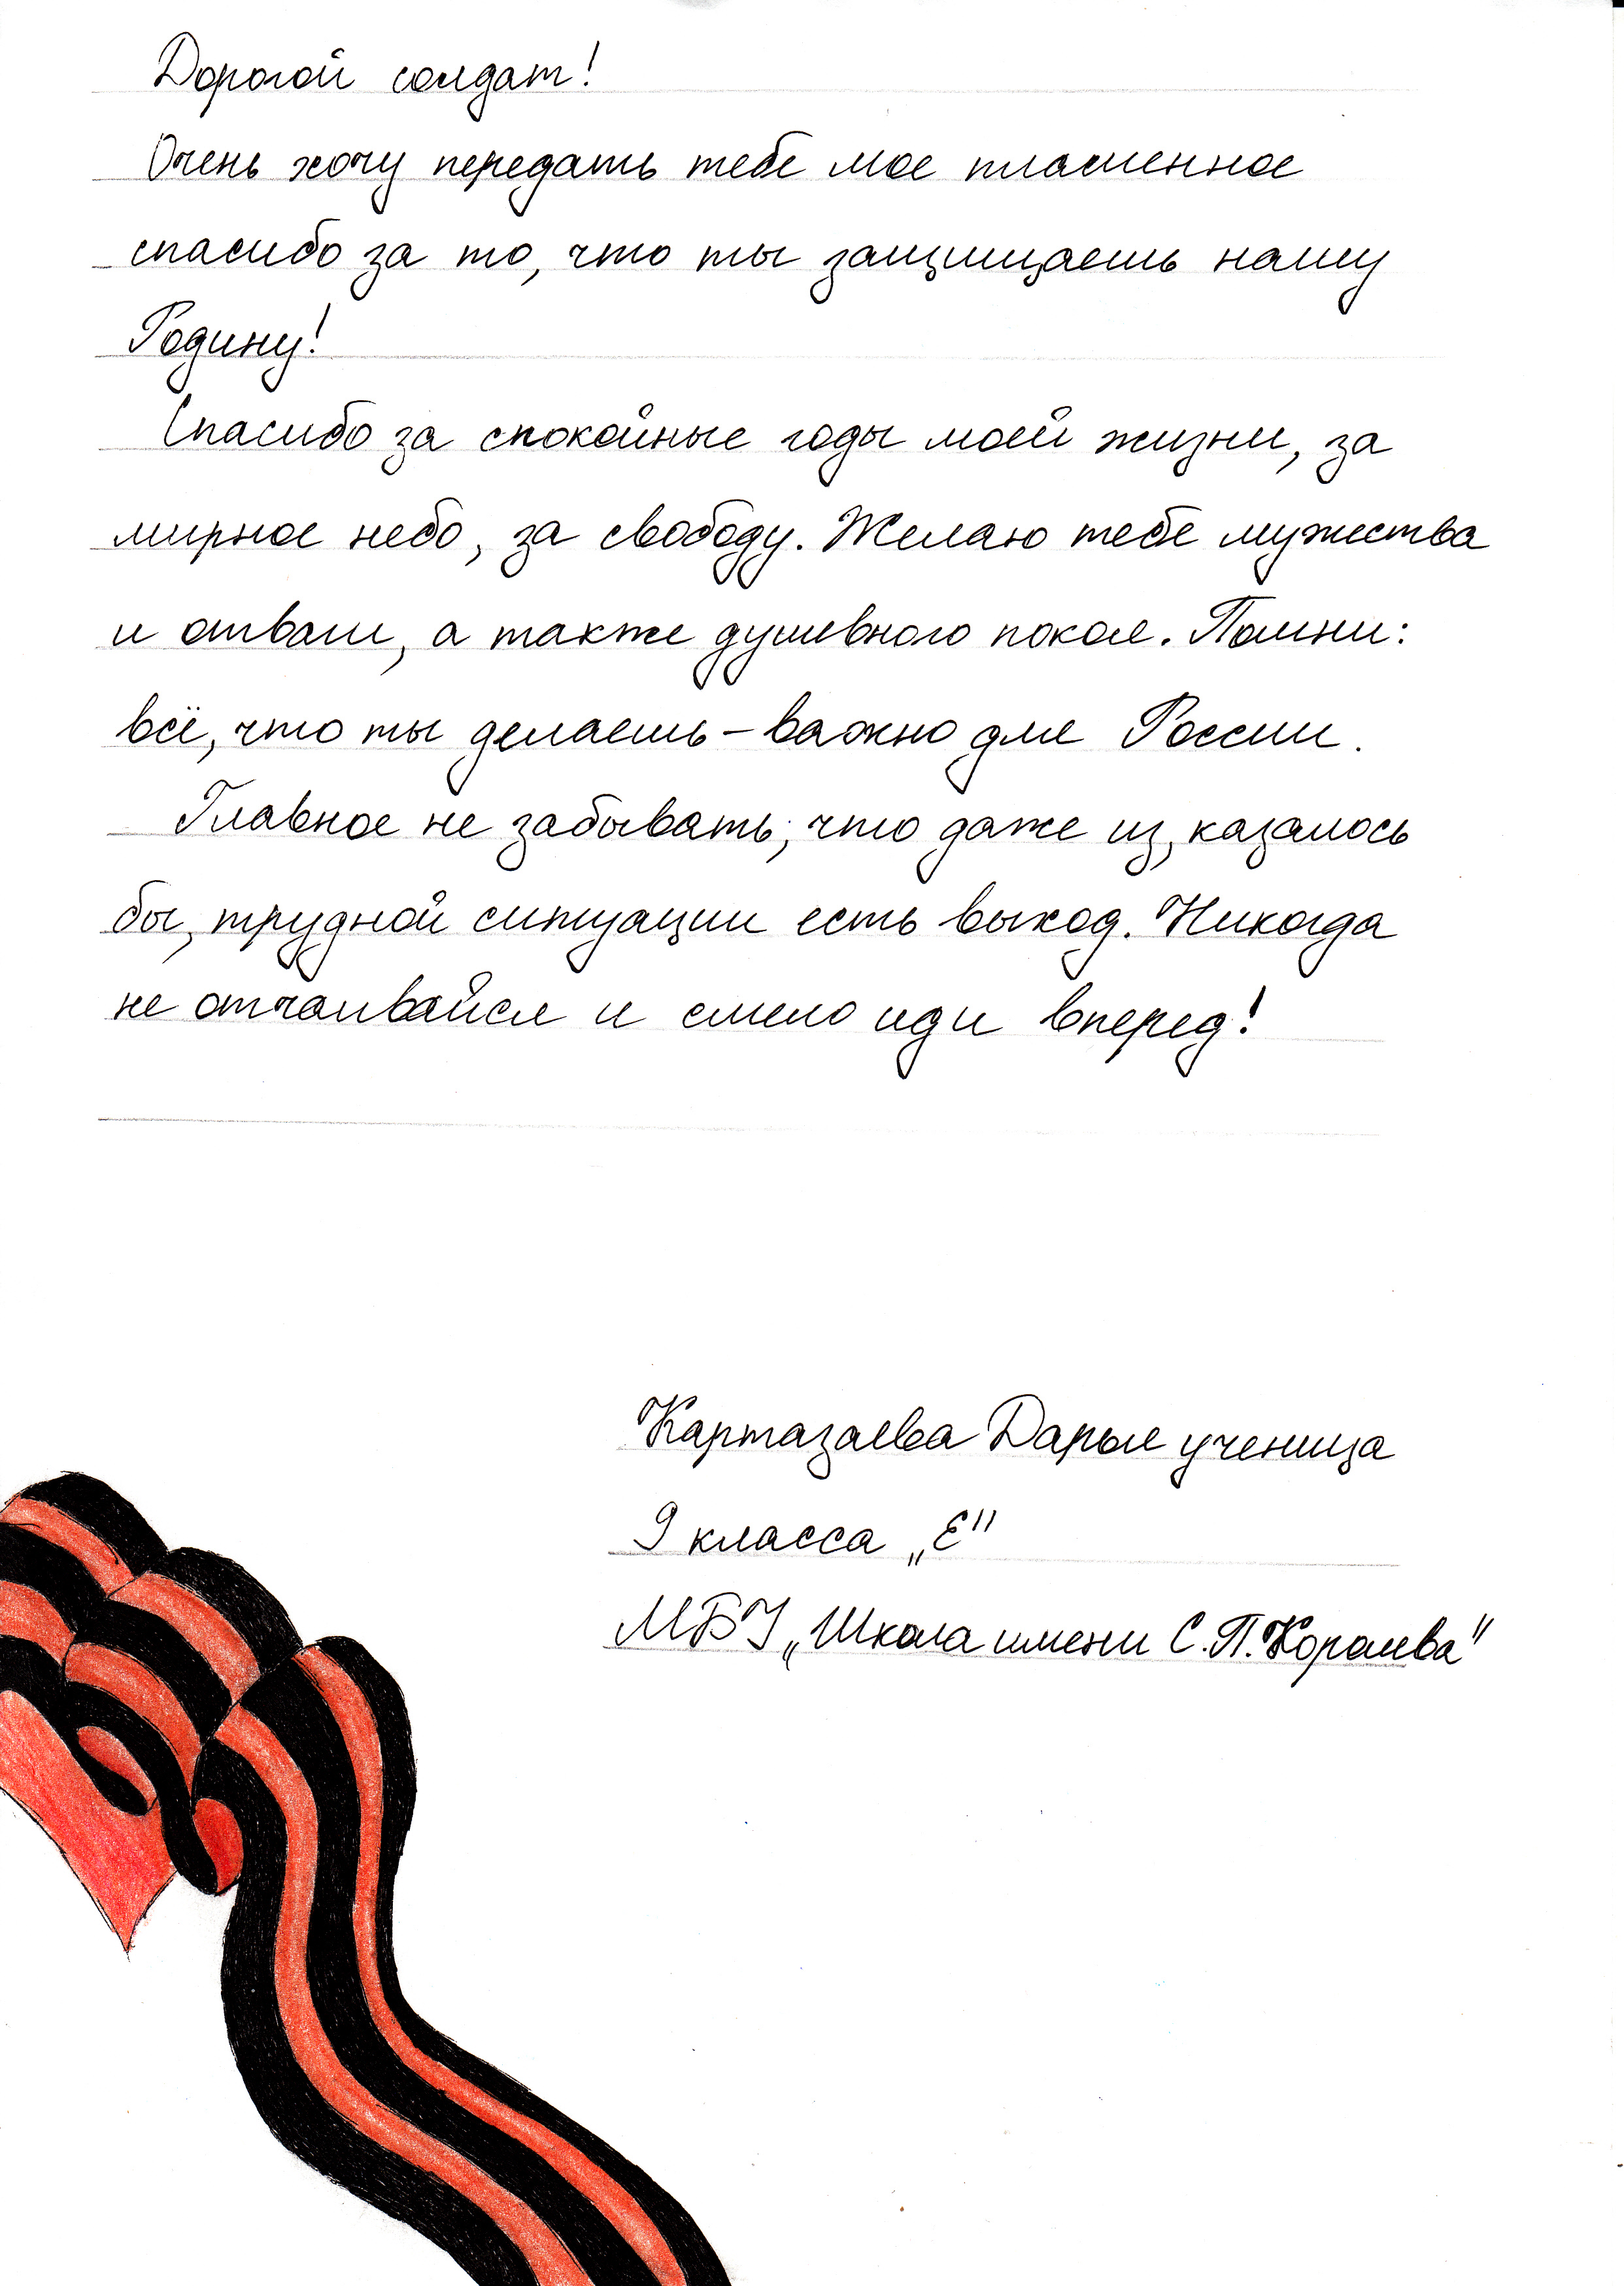 Дорогой солдат!
Очень хочу передать тебе мое пламенное
спасибо за то, что ты защищаешь нашу
Родину!
Спасибо за спокойные годы моей жизни, за
мирное небо, за свободу. Желаю тебе мужества
и отваги, а также душевного покоя. Помни:
всё, что ты делаешь – важно для России.
Главное не забывать, что даже из, казалось
бы, трудной ситуации есть выход. Никогда
не отчаивайся и смело иди вперед!
Картазаева Дарья ученица
9 класса „Е"
МБУ „Школа имени С.П.Королева"